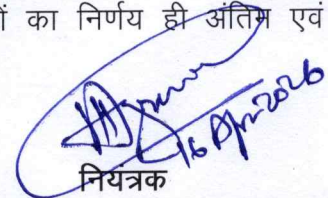 ों का निर्णय ही अंतिम एवं
16 Apr 2026
नियंत्रक